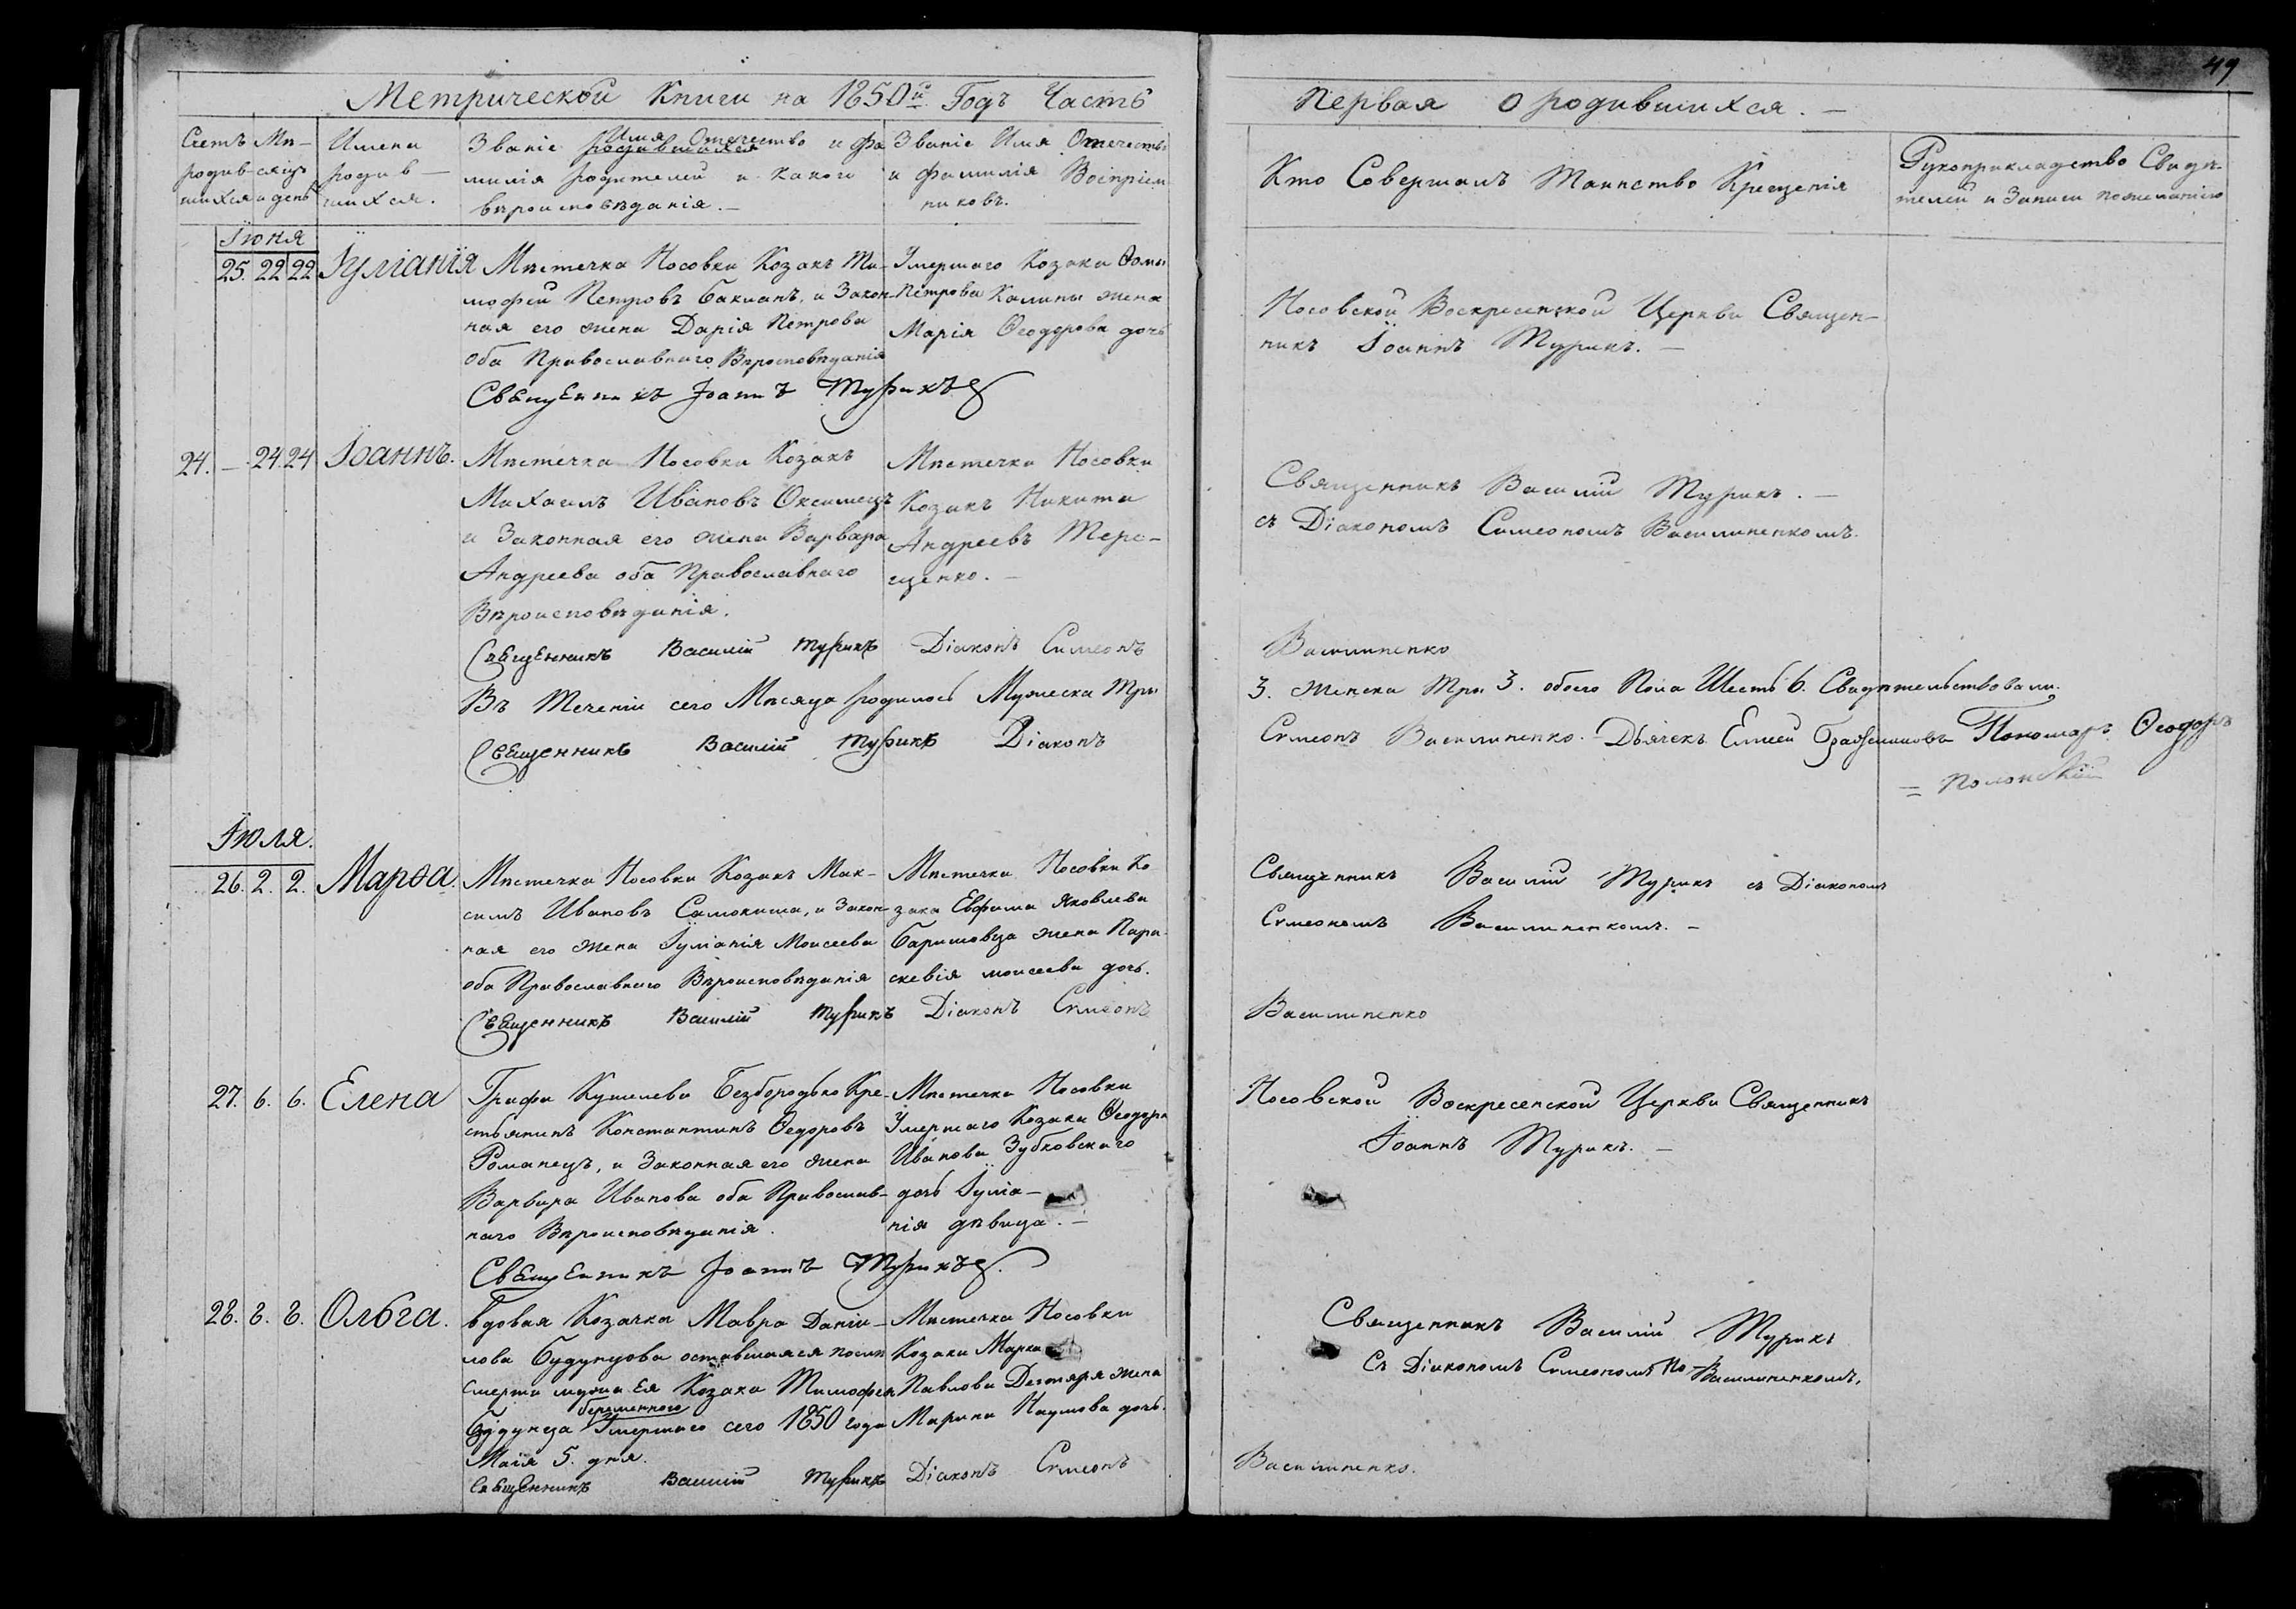 49
Метрической Книги на 1850й Годъ Часть
Первая о родившихся. —
Счетъ родив- шихся
Мѣ- сяцъ и день
Имена родив- шихся.
Званіе Имя Отчество и фа- милія родителей и какого вѣроисповѣданія. —
Званіе Имя Отечество и фамилія Воспріем- никовъ.
Кто Совершалъ Таинство Крещенія
Рукоприкладство Свидѣ- телей и Записи по желанію
Іюня
25. 22 22 Іуліанія
Мѣстечка Носовки Козакъ Ти-
мофей Петровъ Бакланъ, и Закон-
ная его жена Дарія Петрова
оба Православнаго Вѣроисповѣданія
Умершаго Козака Ѳомы
Петрова Калины жена
Марія Ѳеодорова дочь
Носовской Воскресенской Церкви Священ-
никъ Іоаннъ Турикъ. —
Священникъ Іоаннъ Турикъ
24. — 24. 24 Іоаннъ.
Мѣстечка Носовки Козакъ
Михаилъ Ивановъ Оксимецъ
и Законная его жена Варвара
Андреева оба Православнаго
Вѣроисповѣданія.
Мѣстечка Носовки
Козакъ Никита
Андреевъ Тере-
щенко. —
Священникъ Василій Турикъ. —
съ Діакономъ Симеономъ Василиненкомъ.
Священникъ Василій Турикъ Діаконъ Симеонъ Василиненко
Въ Теченіи сего Мѣсяца родилось Мужеска Три 3. женска Три 3. обоего Пола Шесть 6. Свидѣтельствовали.
Священникъ Василій Турикъ Діаконъ Симеонъ Василиненко. Дьячекъ Елисей Пономарь Ѳеодоръ
= Полонскій
Іюля.
26. 2. 2. Марѳа.
Мѣстечка Носовки Козакъ Мак-
симъ Ивановъ Самокиша, и Закон-
ная его жена Іуліанія Моисеева
оба Православнаго Вѣроисповѣданія
Мѣстечка Носовки Ко
зака Евфима Яковлева
Баришовца жена Пара-
скевія моисеева дочь.
Священникъ Василій Турикъ съ Діакономъ
Симеономъ Василиненкомъ. —
Священникъ Василій Турикъ Діаконъ Симеонъ Василиненко
27. 6. 6. Елена
Графа Кушелева Безбородько Кре-
стьянинъ Константинъ Ѳедоровъ
Романецъ, и Законная его жена
Варвара Иванова оба Православ-
наго Вѣроисповѣданія.
Мѣстечка Носовки
Умершаго Козака Ѳеодора
Иванова Зубковскаго
дочь Іуліа-
нія дѣвица. —
Носовской Воскресенской Церкви Священникъ
Іоаннъ Турикъ. —
Священникъ Іоаннъ Турикъ.
28. 8. 8. Ольга.
Вдовая Козачка Мавра Даніи-
лова Будунцова оставшаяся послѣ
Смерти мужа Ея Козака Тимофея
беременного
Будунца Умершаго сего 1850 года
Маія 5. дня.
Мѣстечка Носовки
Козака Марка
Павлова Дегтяря жена
Марина Наумова дочь.
Священникъ Василій Турикъ
Съ Діакономъ Симеономъ Василиненкомъ.
Священникъ Василій Турикъ Діаконъ Симеонъ Василиненко.